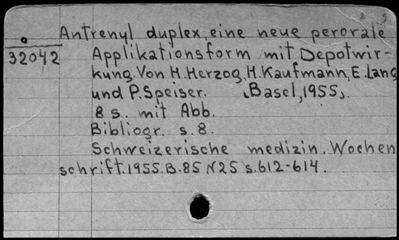 Antrenyl duplex, eine neue perorale
32042 Applikationsform mit Depotwir-
kung. Von H. Herzog, H. Kaufmann, E. Lang
und P. Speiser. (Basel, 1955).
8 s. mit Abb.
Bibliogr. s. 8.
Schweizerische medizin. Wochen
schrift. 1955. B. 85 N25 s. 612-614.